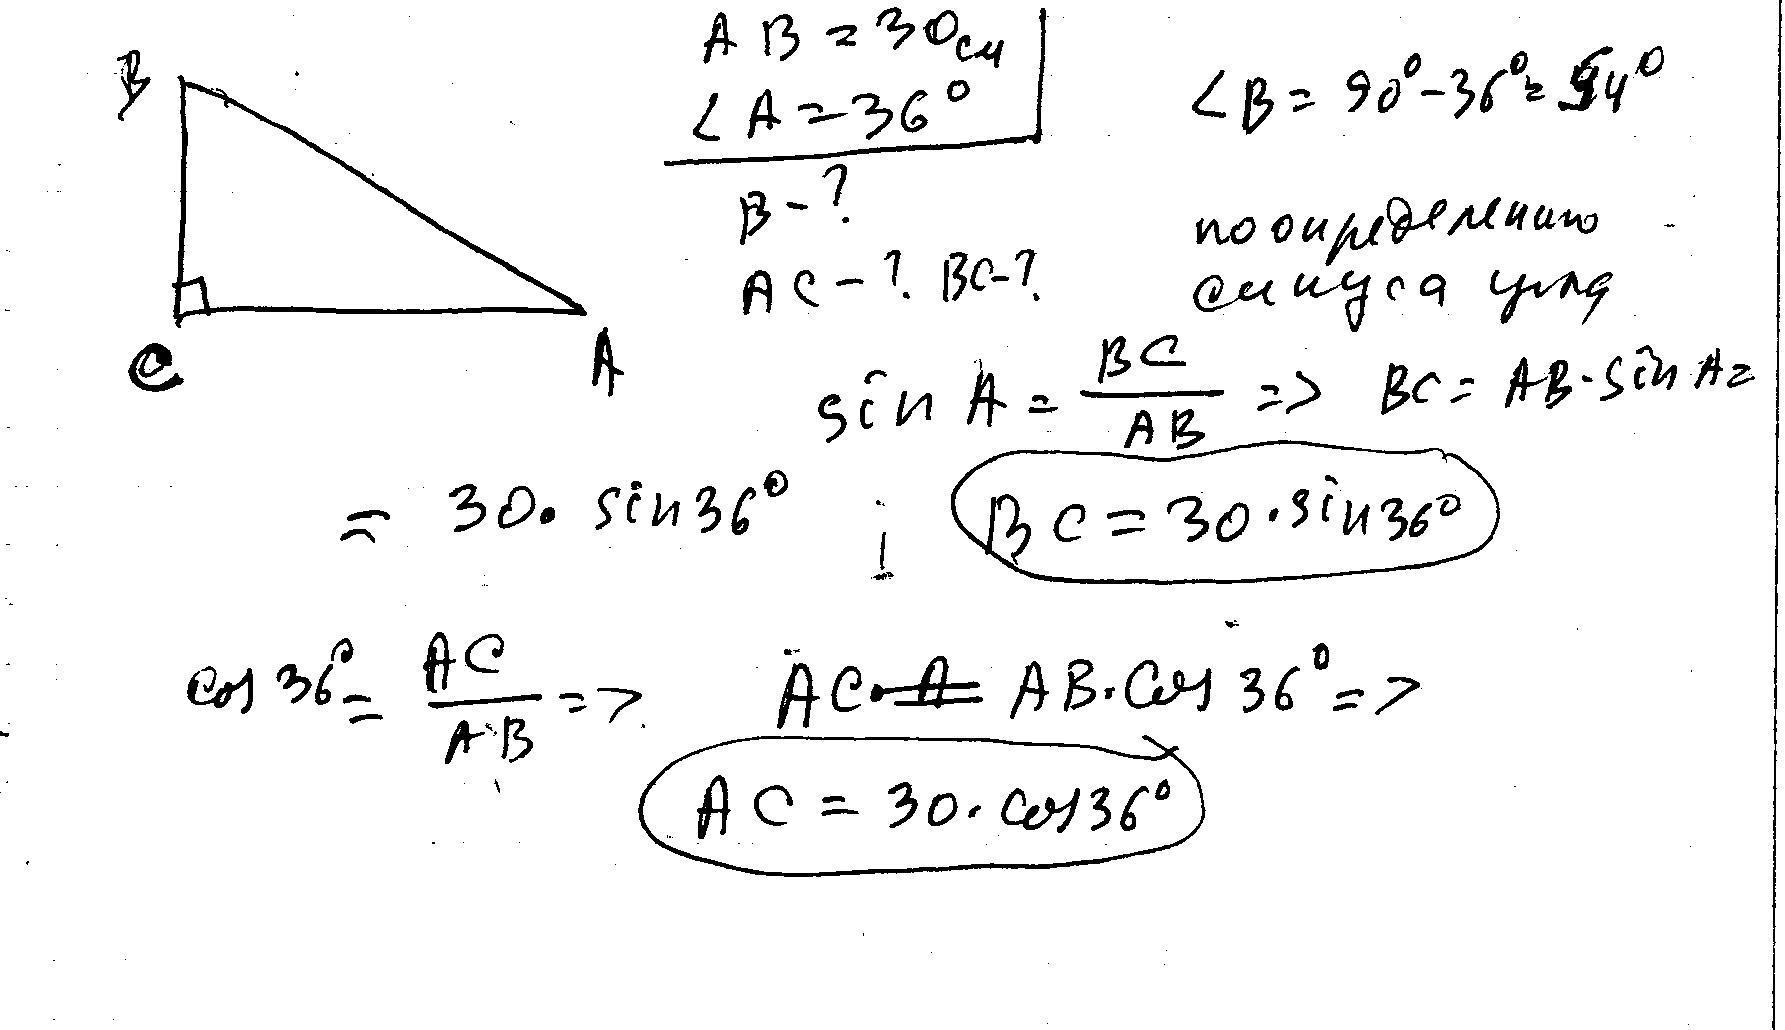 B
C
A
AB = 30см
∠A = 36°
B - ?
AC - ? BC - ?
∠B = 90° - 36° = 54°
по определению
синуса угла
sin A = BC / AB => BC = AB · sin A =
= 30 · sin 36° ;
BC = 30 · sin 36°
cos 36° = AC / AB => AC = AB · cos 36° =>
AC = 30 · cos 36°